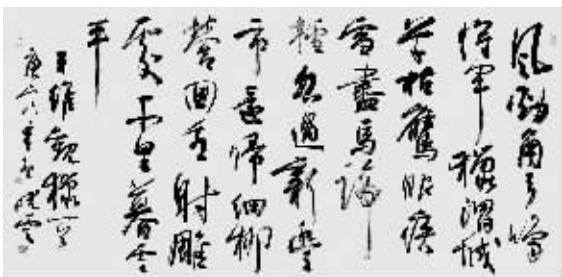 風勁角弓鳴
將軍獵渭城
草枯鷹眼疾
雪盡馬蹄
輕忽過新豐
市還歸細柳
營回看射雕
處千里暮雲
平
王維觀獵
庚